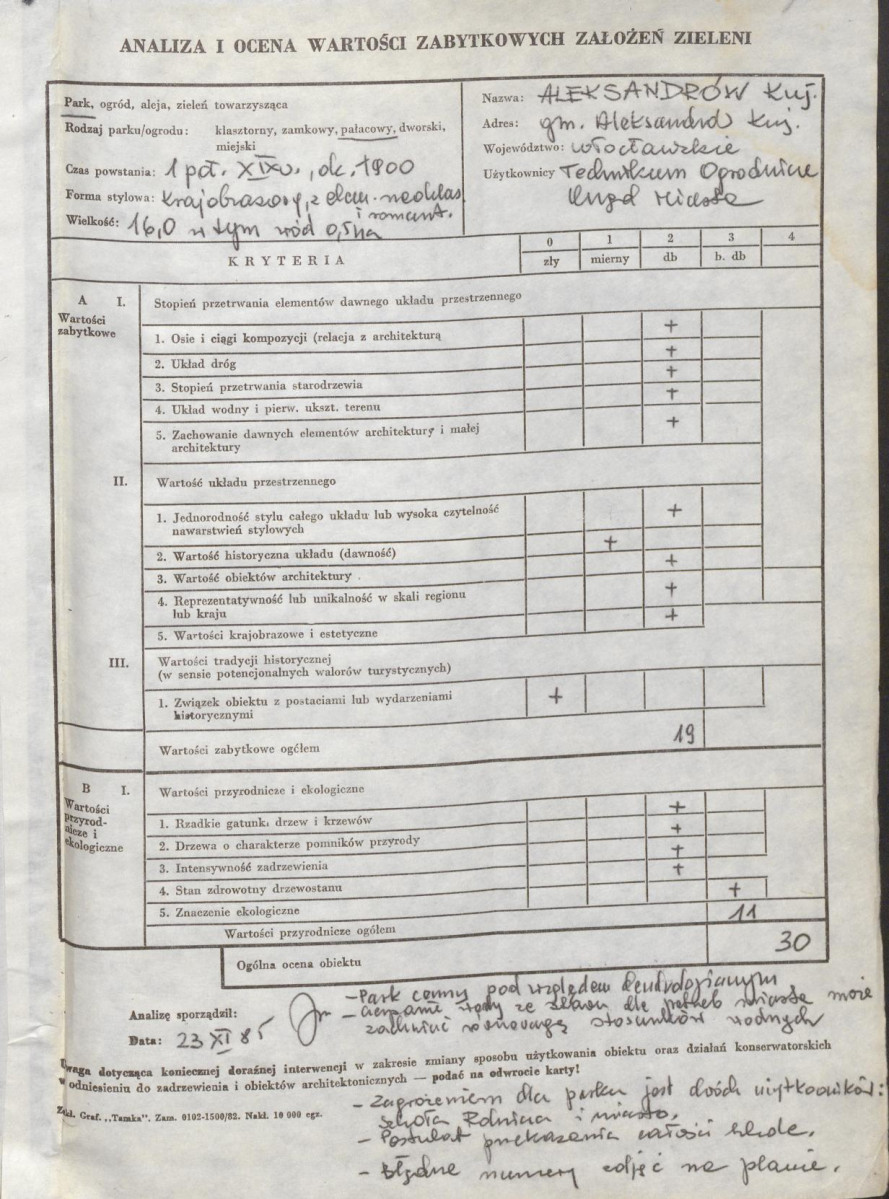 ANALIZA I OCENA WARTOŚCI ZABYTKOWYCH ZAŁOŻEŃ ZIELENI
Park, ogród, aleja, zieleń towarzysząca
Rodzaj parku/ogrodu: klasztorny, zamkowy, pałacowy, dworski,
miejski
Czas powstania: 1 poł. XIXw., ok. 1900
Forma stylowa: krajobrazowy, z elem. neoklas
i romant.
Wielkość: 16,0 w tym wód 0,5 ha
Nazwa: ALEKSANDRÓW Kuj.
Adres: gm. Aleksandrów Kuj.
Województwo: włocławskie
Użytkownicy Technikum Ogrodnicze
Urząd Miasta
KRYTERIA
0 1 2 3 4
zły mierny db b. db
A I. Stopień przetrwania elementów dawnego układu przestrzennego
Wartości
zabytkowe
1. Osie i ciągi kompozycji (relacja z architekturą +
2. Układ dróg +
3. Stopień przetrwania starodrzewia +
4. Układ wodny i pierw. ukszt. terenu +
5. Zachowanie dawnych elementów architektury i małej +
architektury
II. Wartość układu przestrzennego
1. Jednorodność stylu całego układu lub wysoka czytelność +
nawarstwień stylowych
2. Wartość historyczna układu (dawność) +
3. Wartość obiektów architektury +
4. Reprezentatywność lub unikalność w skali regionu +
lub kraju
5. Wartości krajobrazowe i estetyczne +
III. Wartości tradycji historycznej
(w sensie potencjonalnych walorów turystycznych)
1. Związek obiektu z postaciami lub wydarzeniami +
historycznymi
Wartości zabytkowe ogółem 19
B I. Wartości przyrodnicze i ekologiczne
Wartości
przyrod-
nicze i
ekologiczne
1. Rzadkie gatunki drzew i krzewów +
2. Drzewa o charakterze pomników przyrody +
3. Intensywność zadrzewienia +
4. Stan zdrowotny drzewostanu +
5. Znaczenie ekologiczne +
Wartości przyrodnicze ogółem 11
Ogólna ocena obiektu 30
- Park cenny pod względem dendrologicznym
Analizę sporządził: - czerpanie wody ze stawu dla potrzeb miasta może
zachwiać równowagę stosunków wodnych
Data: 23 XI 85
Uwaga dotycząca koniecznej doraźnej interwencji w zakresie zmiany sposobu użytkowania obiektu oraz działań konserwatorskich
w odniesieniu do zadrzewienia i obiektów architektonicznych — podać na odwrocie karty!
- Zagrożeniem dla parku jest dwóch użytkowników:
szkoła Rolnicza i miasto.
Zakł. Graf. „Tamka". Zam. 0102-1500/82. Nakł. 10 000 egz.
- Postulat przekazania całości szkole.
- Błędne numery zdjęć na planie.